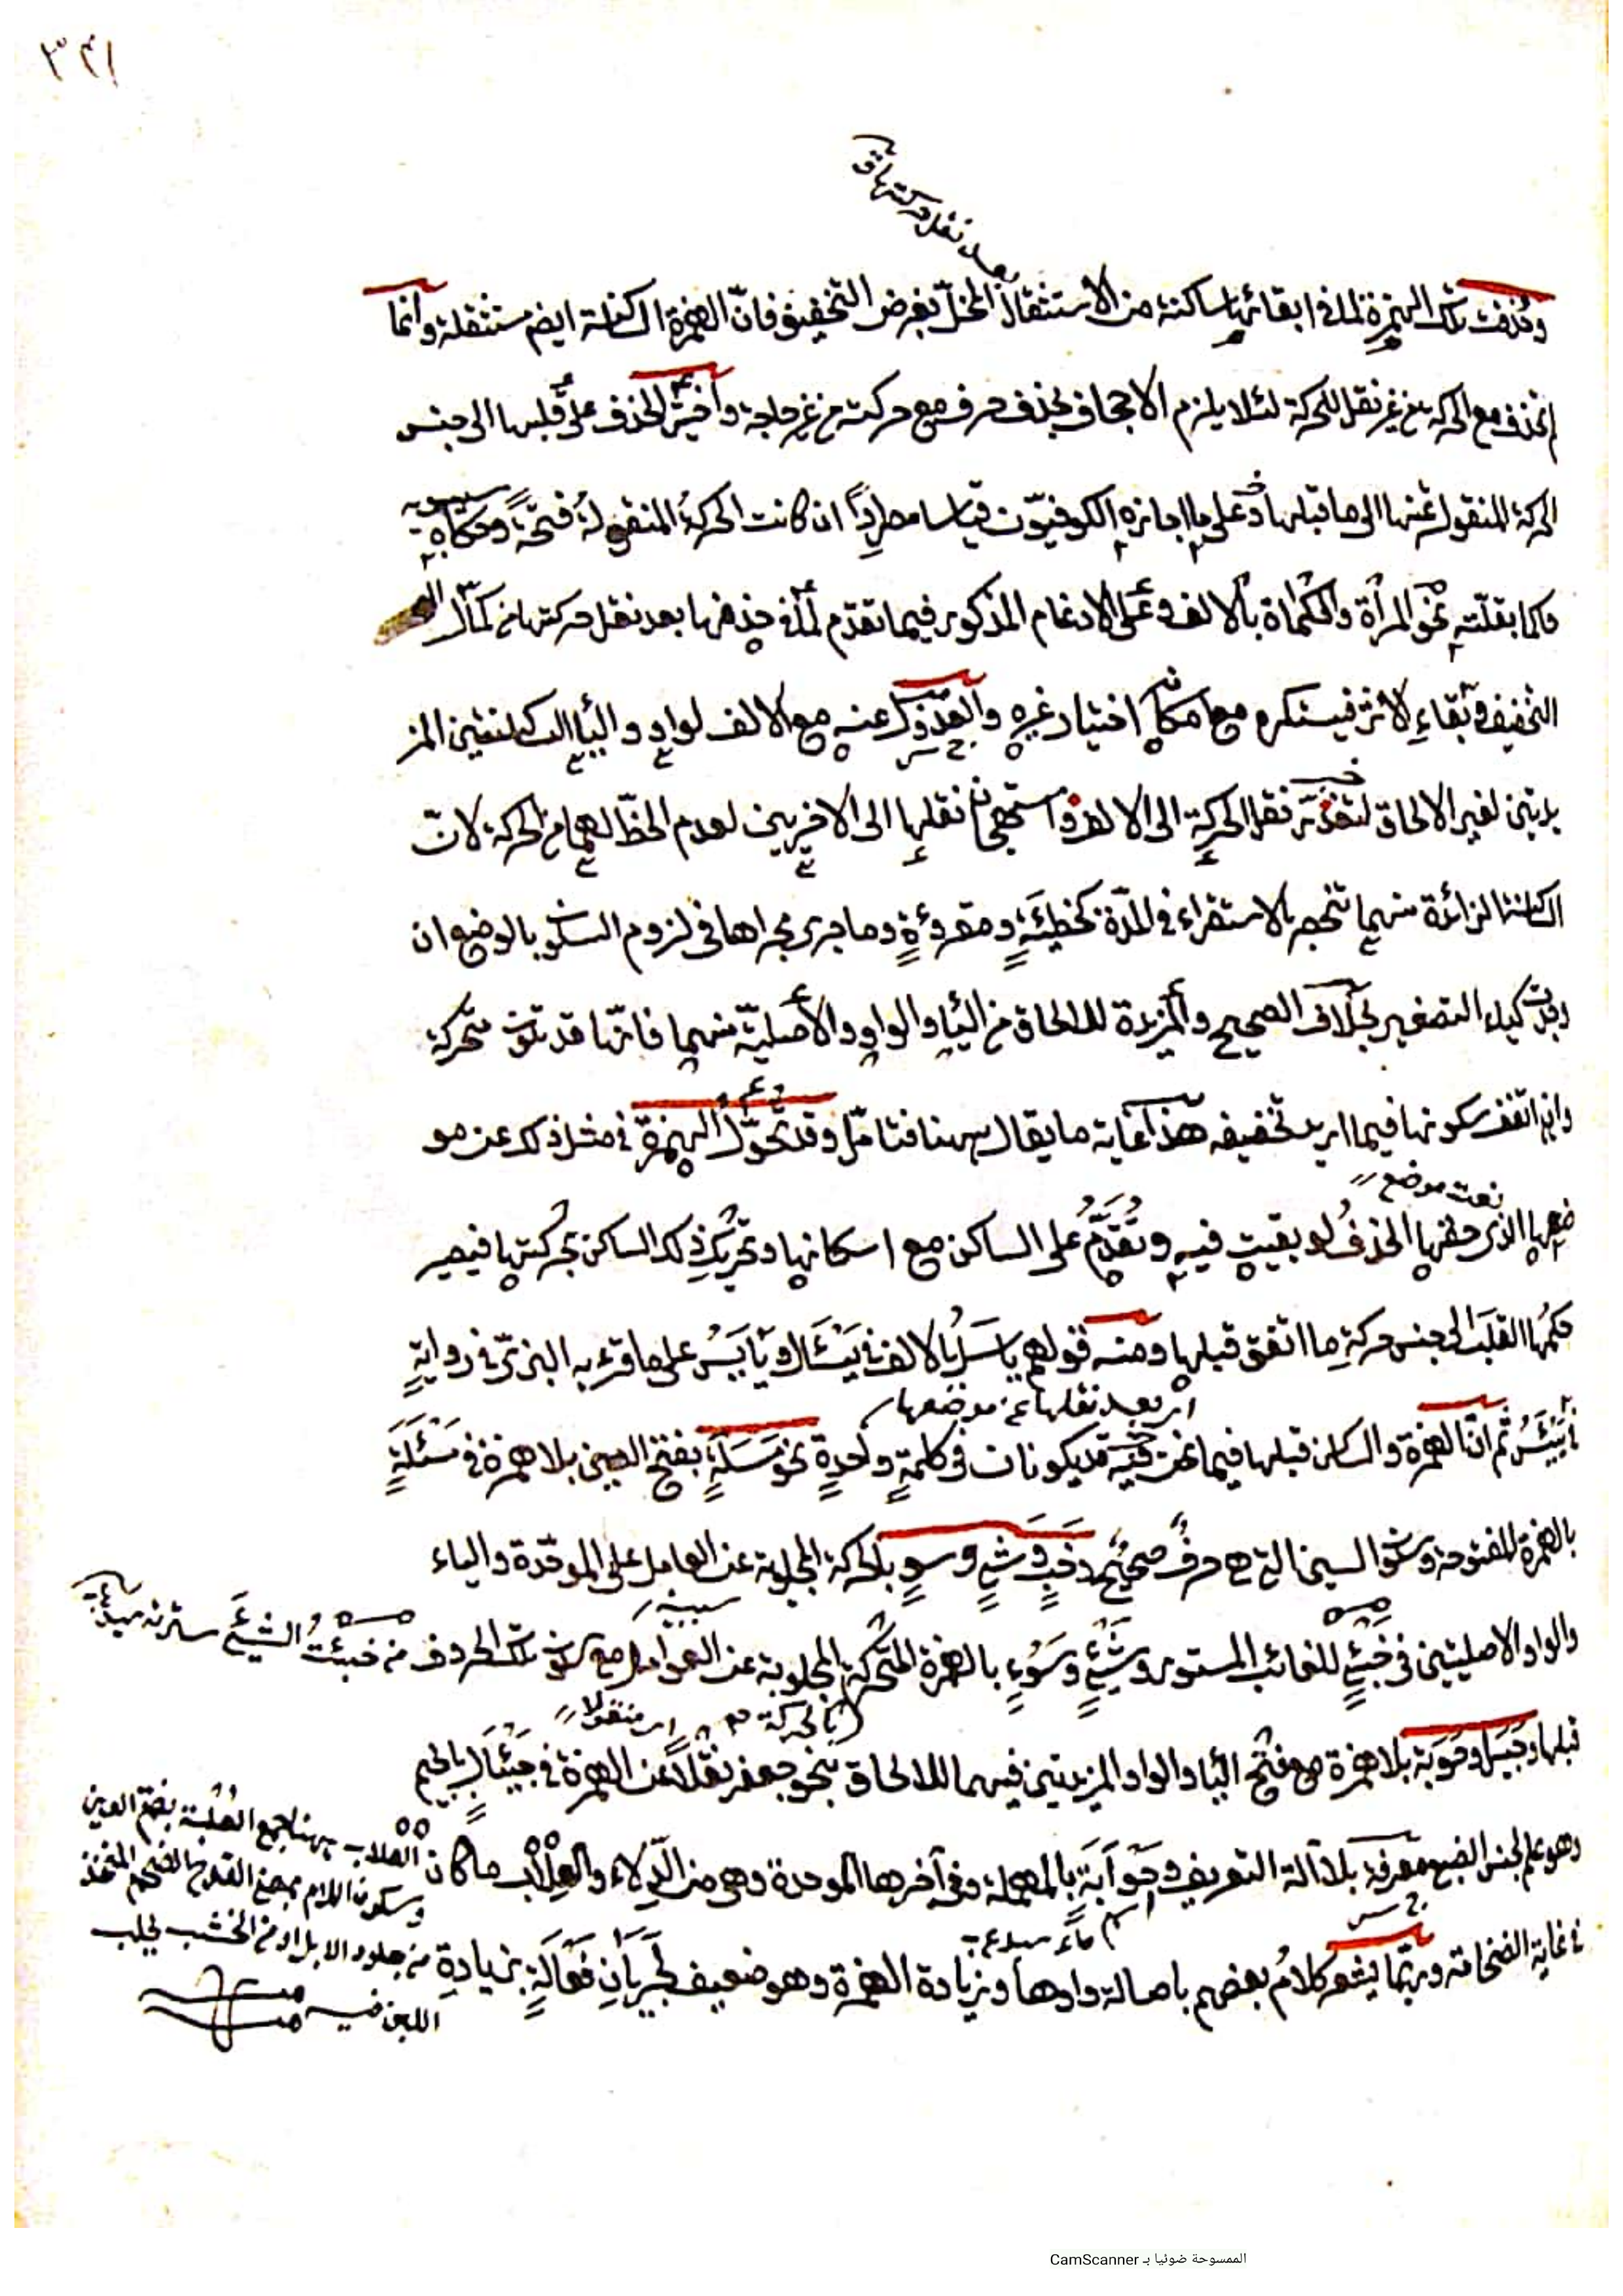 ٣٢١
بعد نقل حركتها
وحذفت تلك الهمزة لما في ابقائها ساكنة من الاستثقال المخلّ بغرض التخفيف فانّ الهمزة الساكنة ايضم مستثقلة وانما
لم تحذف مع الحركة من غير نقل للحركة لئلا يلزم الاجحاف بحذف حرف مع حركته من غير حاجة واختير الحذف على قلبها الى جنس
الحركة المنقولة عنها الى ما قبلها وعلى ما اجازه الكوفيّون قياسا مطرداً ان كانت الحركةُ المنقولةُ فتحةً وحكاه سيبويه
حاكما بقلّته نحو المراة والكماة بالالف وعلى الادغام المذكور فيما تقدم لما في حذفها بعد نقل حركتها من كمال
التخفيف وبقاءِ الاثر فيستكره مع امكان اختيار غيره والعدول عنه مع الالف لواوِ والياء الساكنتين المز
يدتين لغير الالحاق لتعذّر نقل الحركة الى الالف واستهجان نقلها الى الاخريين لعدم الحظّ لهما من الحركة لانّ
الساكنة الزائدة منهما تنحصر بالاستقراء في المدّة كخطيئَةٍ ومقروءَةٍ وما جرى مجراها في لزوم السكون بالوضع ان
وجدت كياء التصغير بخلاف الصحيح والمزيدة للالحاق من الياء والواو والأصليّة منهما فانّها قد تكون متحركة
وان اتفق سكونها فيما اريد تخفيفه هذا غاية ما يقال ههنا فتامّل وقد تحوّل الهمزة في مثل ذلك عن مو
نعت موضع
ضعها الذي حقها الحذفُ لو بقيت فيه وتُقدَّمُ على الساكن مع اسكانها وتحريك ذلك الساكن بحركتها فيصير
حكمُها القلبَ الى جنس حركةِ ما اتفق قبلها ومنه قولهم ياسَلُ بالالف في يَسْئَلُ ويَايَسُ على ما قرء به البزيّ في روايةٍ
اى بعد نقلها عن موضعها
في يَيْئَسُ ثم انّ الهمزة والساكن قبلها فيما نحن فيه قد يكونان في كلمةٍ واحدةٍ نحو مَسَلَةٍ بفتح السين بلا همزة في مَسْئَلَةٍ
بالهمزة المفتوحة وسكون السين التي هي حرفٌ صحيحٌ وخَبٍ وشَيٍ وسوٍ بالحركة المجلوبة عن العامل على الموحّدة والياء
سيبيه
والواو الاصليتين في خَبْئٍ للغائب المستور وشَيْئٍ وسَوْءٍ بالهمزة المتحركة المجلوبة عن العوامل مع سكون تلك الحروف من خبئتُ الشيئَ سترته
بالحركة اى منقولا
قبلها وجَيَلٍ وحَوَبَة بلا همزة مع فتح الياء والواو المزيدتين فيهما للالحاق بنحو جعفر نقلاً عن الهمزة في جَيْئَلٍ بالجيم
وهو علم لجنس الضبع معرفة بلا آلة التعريف وحَوْأَبَةٍ بالمهملة وفي آخرها الموحدة وهي من الدِّلاء والعِلْاب ما كان
اسم ماء
في غاية الضخامة وربّما يشعر كلامُ بعضهم باصالة واوها وزيادة الهمزة وهو ضعيف لجَرَيانِ فَعَالَةٍ بزيادةِ
العُلاب ههنا جمع العُلبة بضمّ العين
وسكون اللام بمعنى القدح الضخم المتخذ
من جلود الابل او من الخشب يحلب
اللبن فيه
الممسوحة ضوئيا بـ CamScanner